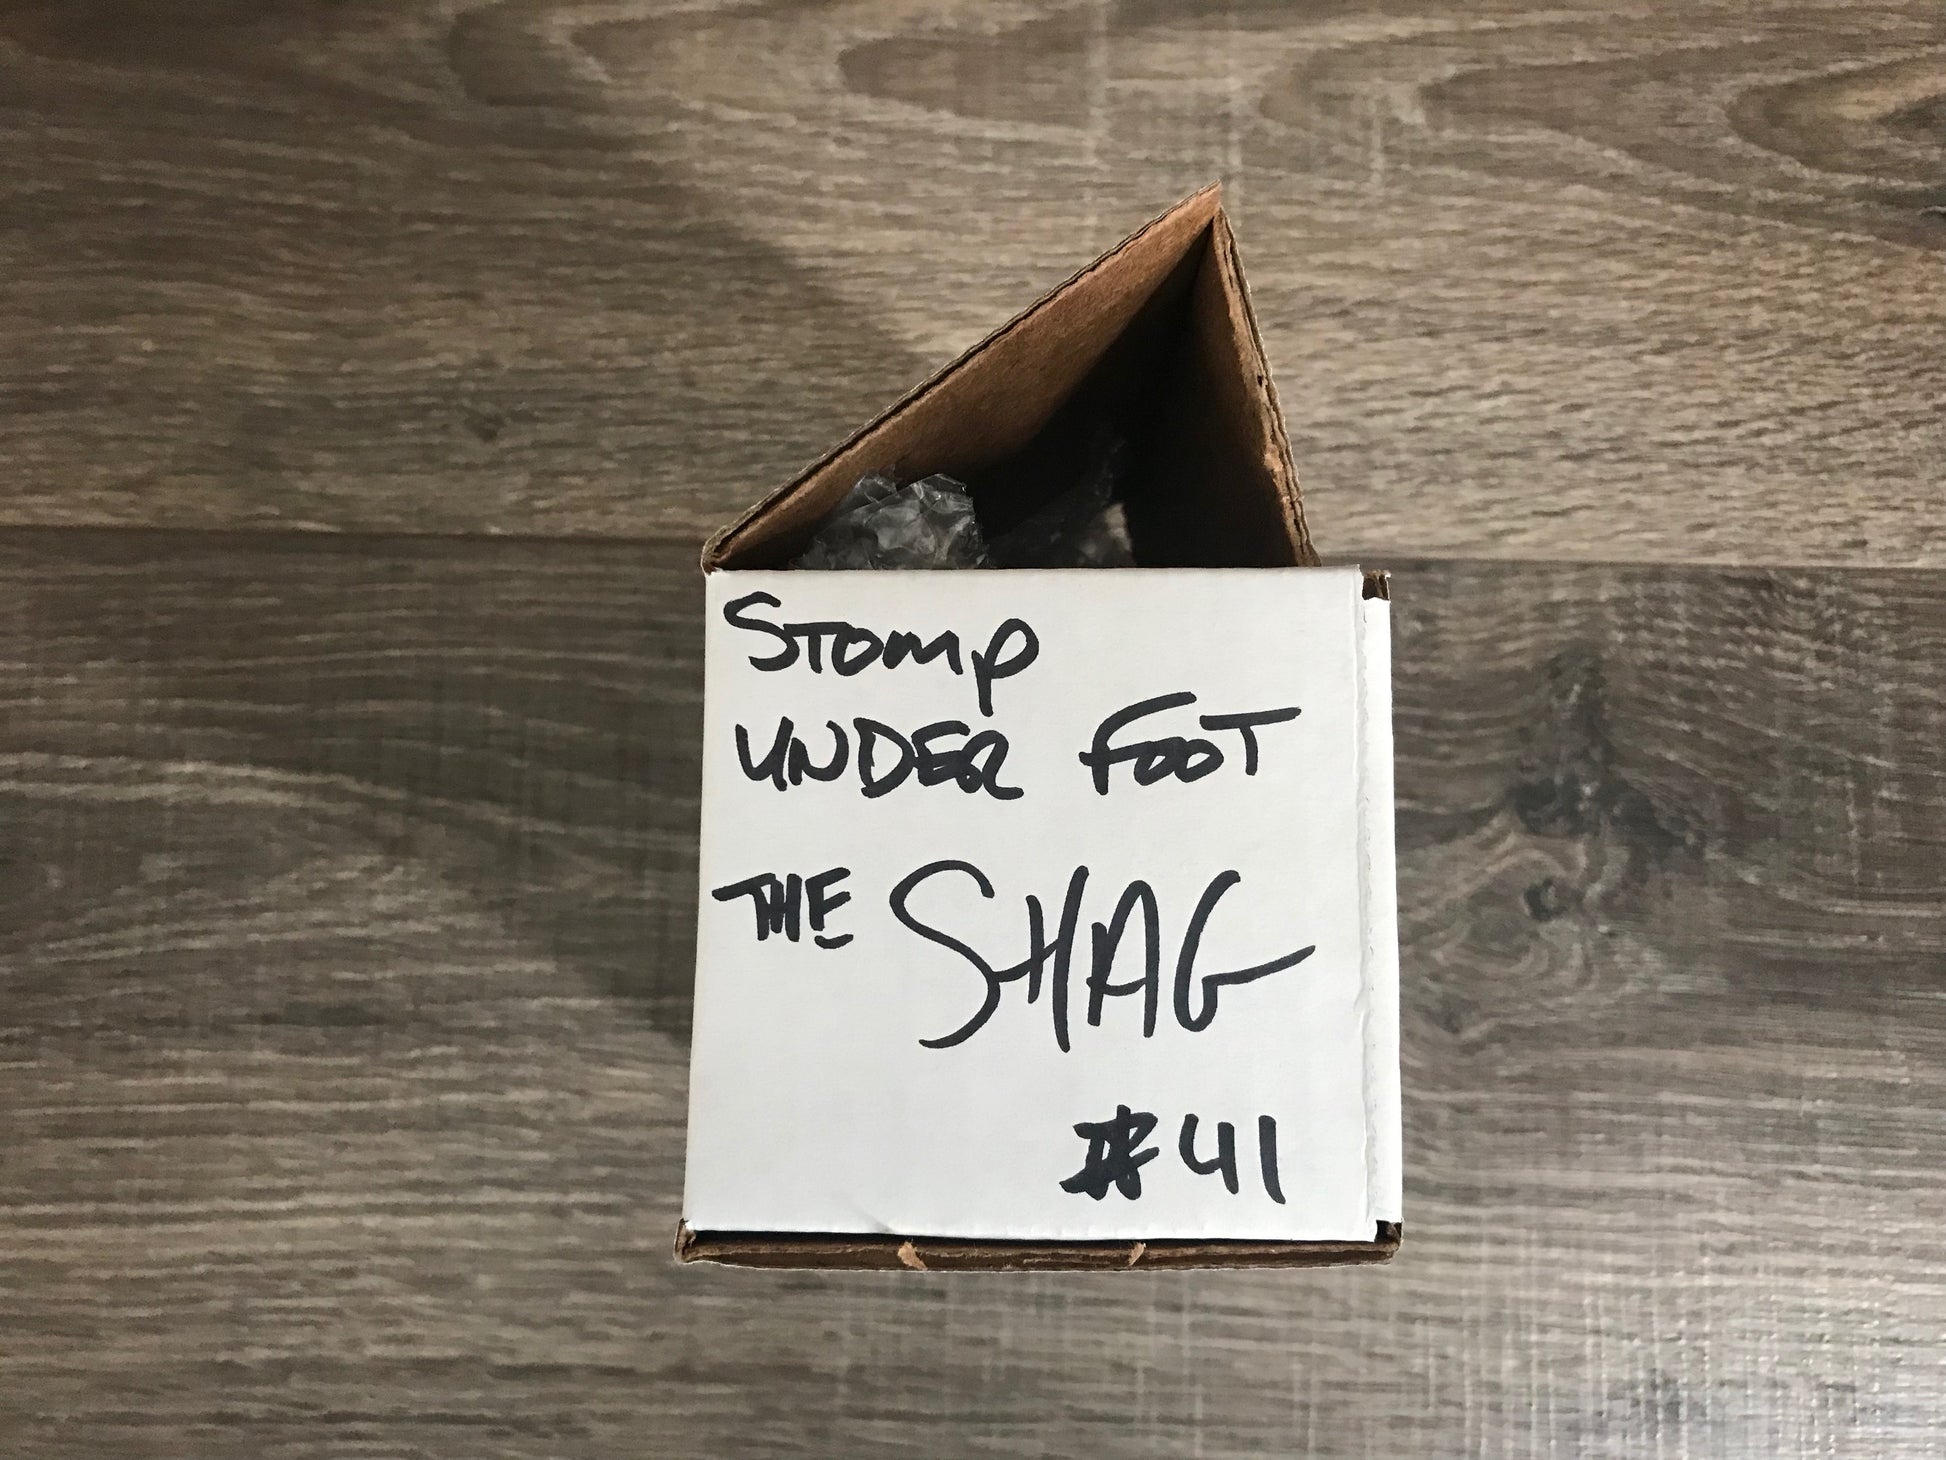 STOMP
UNDER FOOT
THE SHAG
#41